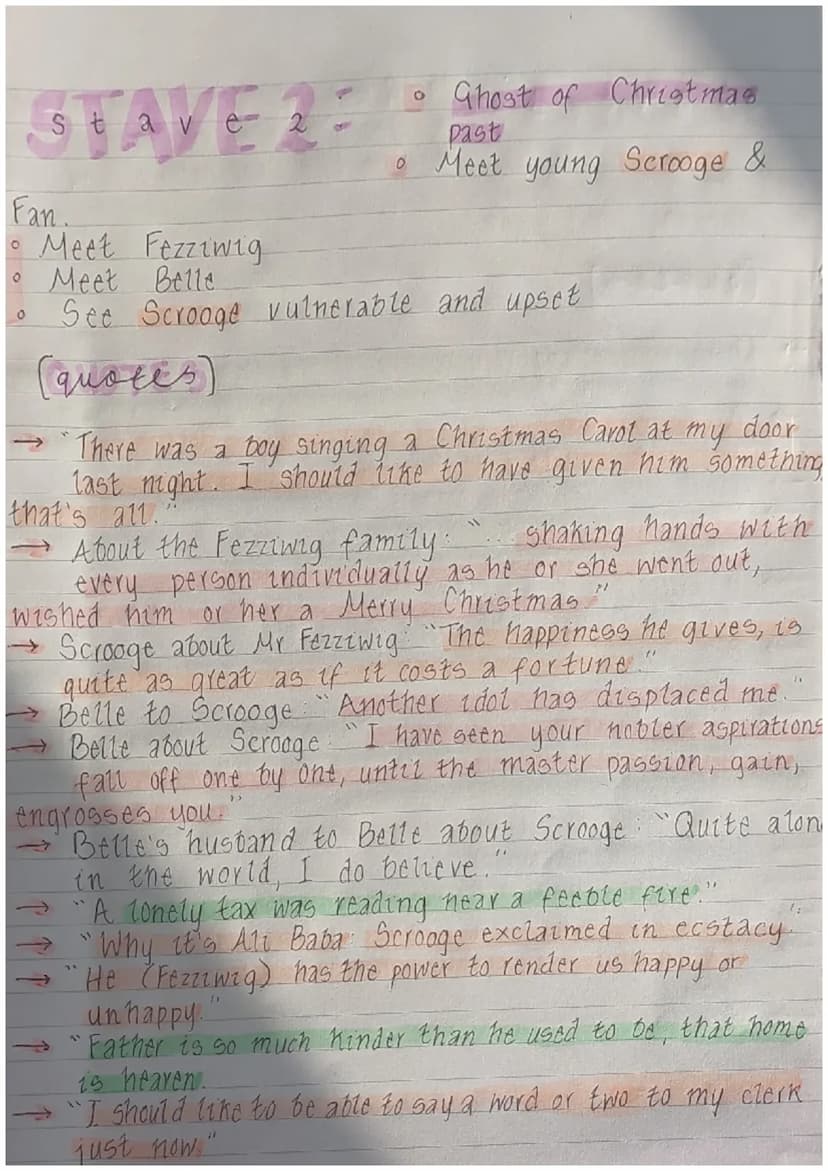 STAVE 2:
stave 2
° Ghost of Christmas
past
° Meet young Scrooge &
Fan.
° Meet Fezziwig
° Meet Belle
° See Scrooge vulnerable and upset
[quotes]
→ "There was a boy singing a Christmas Carol at my door
last night. I should like to have given him something
that's all."
→ About the Fezziwig family: "... shaking hands with
every person individually as he or she went out,
wished him or her a Merry Christmas."
→ Scrooge about Mr Fezziwig: "The happiness he gives, is
quite as great as if it costs a fortune."
→ Belle to Scrooge: "Another idol has displaced me."
→ Belle about Scrooge: "I have seen your nobler aspirations
fall off one by one, until the master passion, gain,
engrosses you."
→ Belle's husband to Belle about Scrooge: "Quite alon
in the world, I do believe."
→ "A lonely tax was reading near a feeble fire."
→ "Why it's Ali Baba: Scrooge exclaimed in ecstacy."
→ "He (Fezziwig) has the power to render us happy or
unhappy."
→ "Father is so much kinder than he used to be, that home
is heaven.
→ "I should like to be able to say a word or two to my clerk
just now."